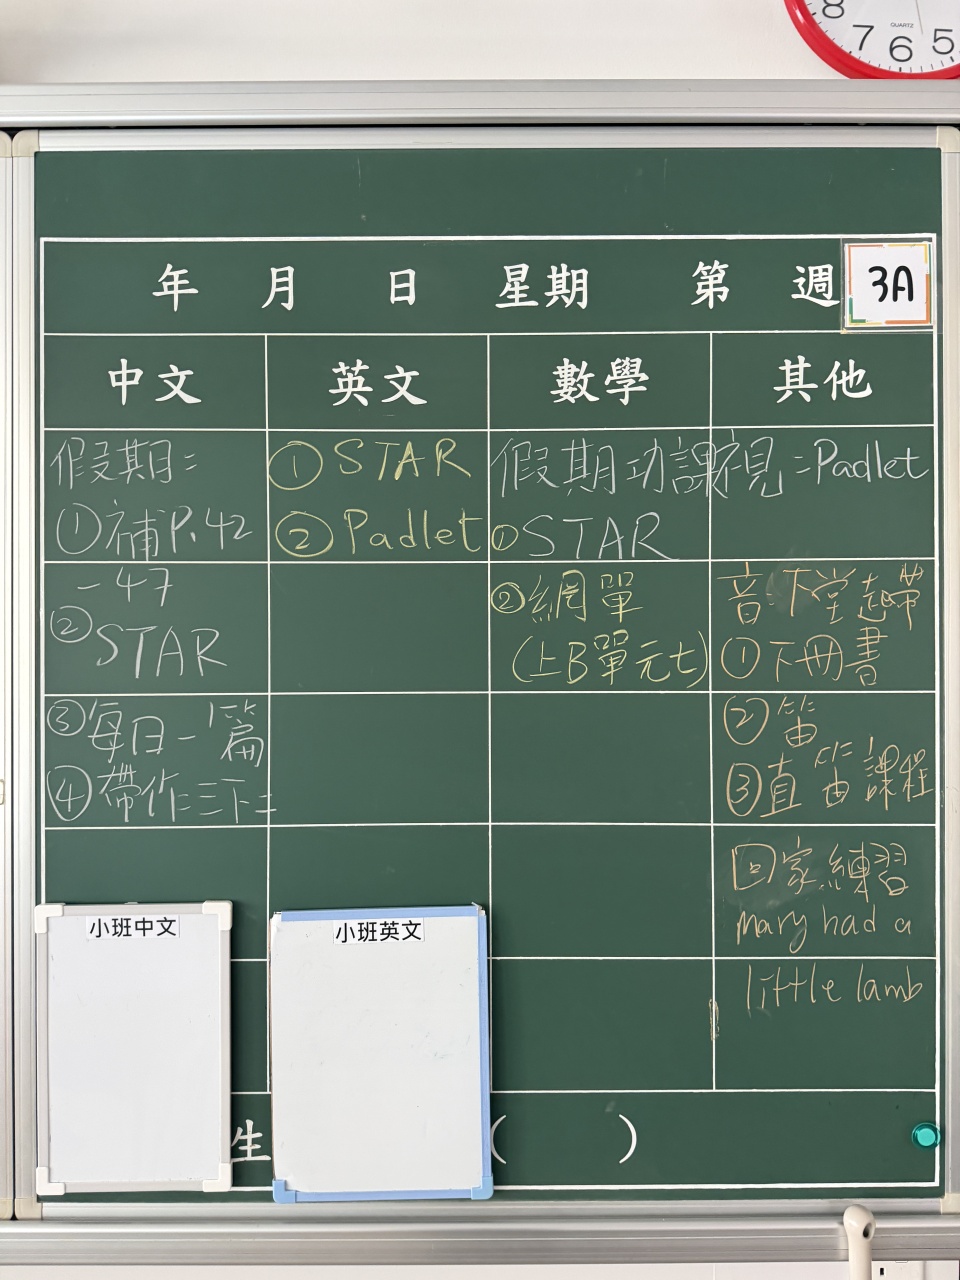 8 7 6 5
QUARTZ
年 月 日 星期 第 週 3A
中文 英文 數學 其他
假期:
①補P.42
-47
②STAR
③每日一篇
④帶作三下二
① STAR
② Padlet
假期功課
①STAR
②網單
(上B單元七)
視:Padlet
音:下堂起帶
①下冊書
②笛
③直笛課程
回家練習
Mary had a
little lamb
小班中文
小班英文
生 ( )